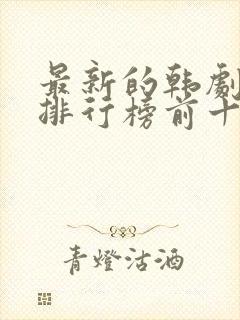 最新的韩劇
排行榜前十
青燈沽酒